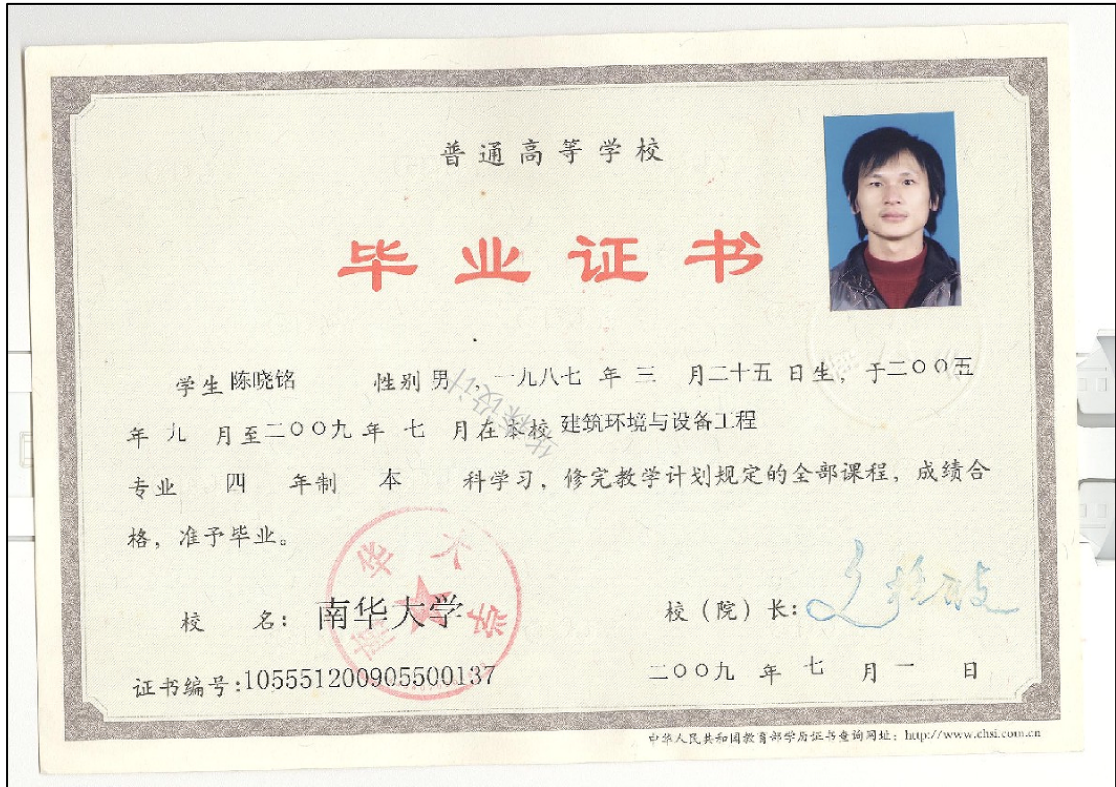 普通高等学校
毕业证书
学生 陈晓铭 性别 男 ,一九八七 年 三 月二十五 日生, 于二〇〇五
年 九 月至二〇〇九 年 七 月在本校 建筑环境与设备工程
专业 四 年制 本 科学习, 修完教学计划规定的全部课程, 成绩合
格, 准予毕业。
校 名: 南华大学
校(院)长:
证书编号:105551200905500137
二〇〇九 年 七 月 一 日
南华大学
中华人民共和国教育部学历证书查询网址: http://www.chsi.com.cn